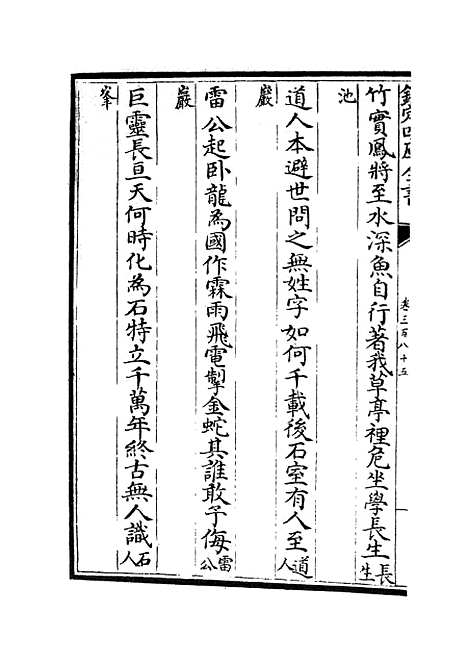 欽定四庫全書
卷三百八十五
竹實鳳將至水深魚自行著我草亭裡危坐學長生長生
池
道人本避世問之無姓字如何千載後石室有人至道人
巖
雷公起卧龍為國作霖雨飛電掣金蛇其誰敢予侮雷公
巖
巨靈長亘天何時化為石特立千萬年終古無人識石人
峯